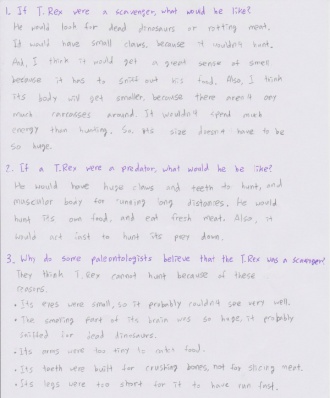 1. If T.Rex were a scavenger, what would be like?
He would look for dead dinosaurs or rotting meat.
It would have small claws, because it wouldn't hunt.
And, I think it would get a great sense of smell
because it has to sniff out his food. Also, I think
its body will get smaller, because there aren't any
much carcasses around. It wouldn't spend much
energy than hunting. So, his size doesn't have to be
so huge.
2. If a T.Rex were a predator, what would be be like?
He would have huge claws and teeth to hunt, and
muscular body for running long distances. He would
hunt its own food, and eat fresh meat. Also, it
could act fast to hunt its prey down.
3. Why do some paleontologists believe that the T.Rex was a scavenger?
They think T.Rex cannot hunt because of these
reasons.
• Its eyes were small, so it probably couldn't see very well.
• The smelling part of its brain was so huge, it probably
sniffed for dead dinosaurs.
• Its arms were too tiny to catch food.
• Its teeth were built for crushing bones, not for slicing meat.
• Its legs were too short for it to have run fast.